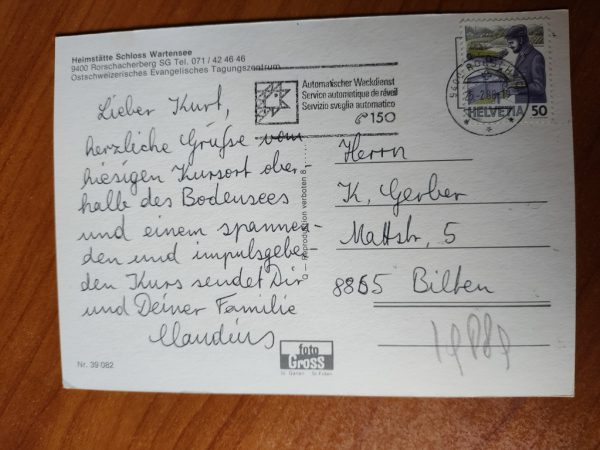 Heimstätte Schloss Wartensee
9400 Rorschacherberg SG Tel. 071 / 42 46 46
Ostschweizerisches Evangelisches Tagungszentrum
Automatischer Weckdienst
Service automatique de réveil
Servizio sveglia automatico
150
HELVETIA 50
Lieber Kurt,
herzliche Grüsse vom
hiesigen Kursort ober-
halb des Bodensees
und einem spannen-
den und impulsgeben-
den Kurs sendet Dir
und Deiner Familie
Claudius
Reproduktion verboten
Herrn
K. Gerber
Mattstr. 5
8865 Bilten
foto
Gross
St. Gallen
Nr. 39 082